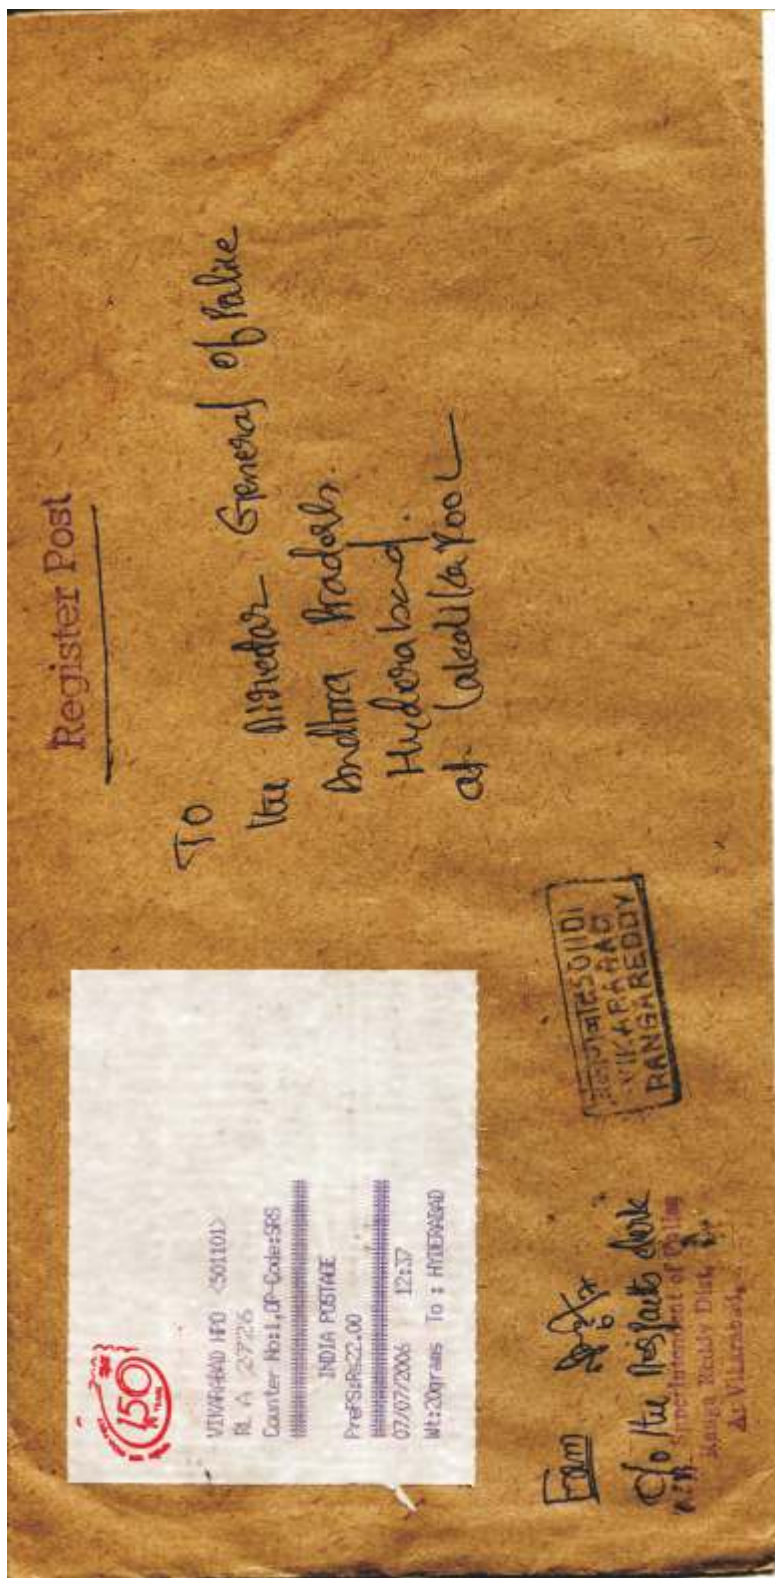 Register Post
To
the Director General of Police
Andhra Pradesh.
Hyderabad.
at Lakdikapool
150
VIKARABAD HPO <501101>
RL A 2726
Counter No:1,OP-Code:SRS
INDIA POSTAGE
PreRS:Rs22.00
07/07/2006 12:37
Wt:20grams To : HYDERABAD
501101
VIKARABAD
RANGAREDDY
From
C/o the
Superintendent of Police
Ranga Reddy Dist.
At Vikarabad.